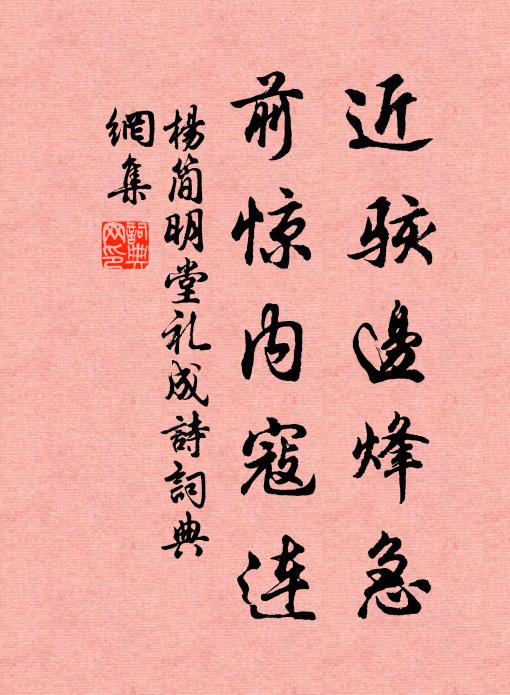 近骇邊烽急
前惊内寇连
杨简明堂礼成詩詞典
網集
詞典网印